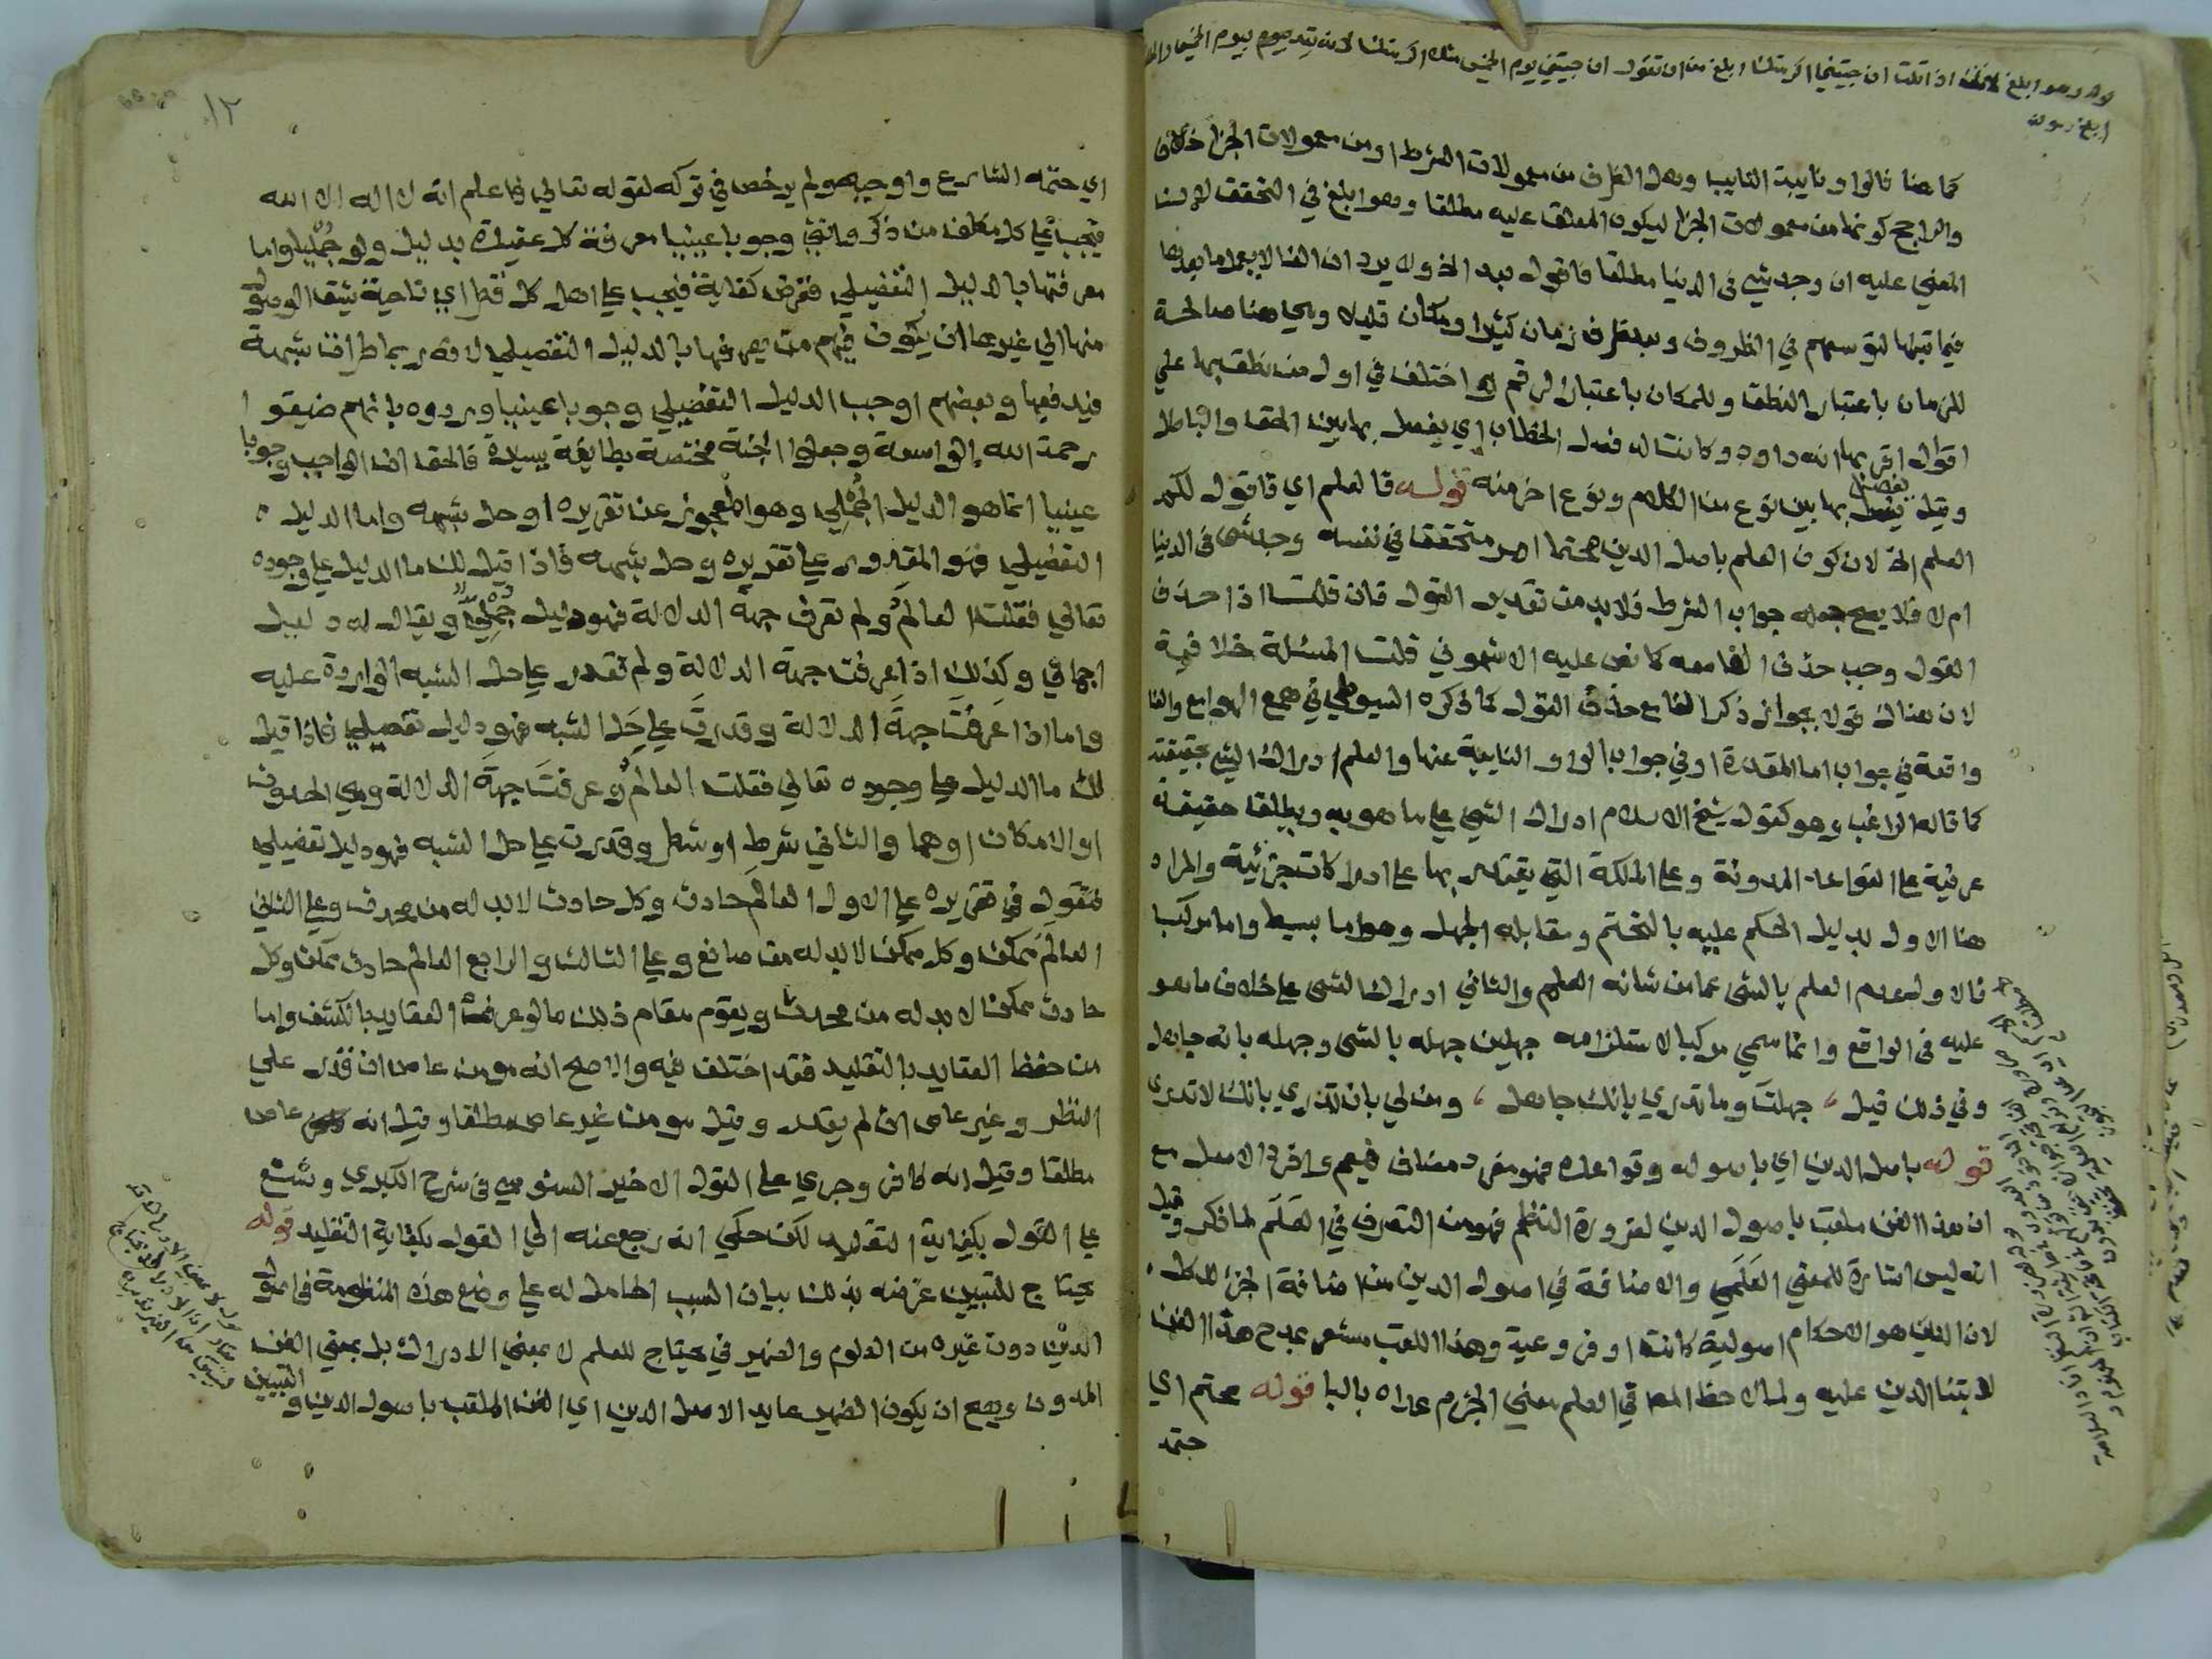 قوله وهو ابلغ لانك اذا قلت ان جيتني اكرمتك ابلغ من ان تقول ان جيتني يوم الخميس مثلا اكرمتك لانه قيد بيوم الخميس
كما هنا فالواو نايبة النايب وهل الظرف من معمولات الشرط او من معمولات الجزا خلاف
والراجح كونها من معمولات الجزا ليكون المعلق عليه مطلقا وهو ابلغ في التحقق لان
المعني عليه ان وجد شي في الدنيا مطلقا فاقول بعد الخ ولا يرد ان الفا لا يعمل ما بعدها
فيما قبلها لتوسعهم في الظروف وبعد ظرف زمان كثيرا ومكان قليلا وهي هنا صالحة
للزمان باعتبار النطق وللمكان باعتبار الرقم واختلف في اول من نطق بها علي
اقوال اقربها انه داود وكانت له فصل الخطاب اي يفصل بها بين الحق والباطل
وقيل يفصل بها بين نوع من الكلام ونوع اخر منه قوله فالعلم اي فاقول لكم
العلم الخ لان كون العلم باصل الدين محتما امر متحقق في نفسه وجد شي في الدنيا
ام لا فلا يصح جعله جواب الشرط فلا بد من تقدير القول فان قلت اذا حذف
القول وجب حذف الفا معه كما نص عليه الاشموني قلت المسئلة خلافية
لان هناك قولا بجواز ذكر الفا مع حذف القول كما ذكره السيوطي في همع الهوامع والفا
واقعة في جواب اما المقدرة او في جواب الواو النايبة عنها والعلم ادراك الشي بحقيقته
كما قاله الراغب وهو كقول شيخ الاسلام ادراك الشي علي ما هو به ويطلق حقيقة
عرفية علي القواعد المدونة وعلي الملكة التي يقتدر بها علي ادراكات جزئية والمراد
هنا الاول بدليل الحكم عليه بالتحتم ومقابله الجهل وهو اما بسيط واما مركب
فالاول عدم العلم بالشي عما من شانه العلم والثاني ادراك الشي علي خلاف ما هو
عليه في الواقع وانما سمي مركبا لاستلزامه جهلين جهله بالشي وجهله بانه جاهل
وفي ذلك قيل، جهلت وما تدري بانك جاهل، ومن لي بان تدري بانك لا تدري
قوله باصل الدين اي باصوله وقواعده فهو مفرد مضاف فيعم وافرد الاصل مع
ان هذا الفن ملقب باصول الدين لضرورة النظم فهو من التصرف في العلم لما ذكر وقيل
انه ليس اشارة للمعني العلمي والاضافة في اصول الدين من اضافة الجزء للكل
لان الدين هو الاحكام اصولية كانت او فروعية وهذا اللقب مشعر بمدح هذا الفن
لابتنا الدين عليه ولما لاحظ المص في العلم معني الجزم عداه بالبا قوله محتم اي
حتمه
١٢
اي حتمه الشارع واوجبه ولم يرخص في تركه لقوله تعالي فاعلم انه لا اله الا الله
فيجب علي كل مكلف من ذكر وانثي وجوبا عينيا معرفة كل عقيدة بدليل ولو جمليا واما
معرفتها بالدليل التفصيلي ففرض كفاية فيجب علي اهل كل قطر اي ناحية يشق الوصول
منها الي غيرها ان يكون فيهم من يعرفها بالدليل التفصيلي لانه ربما طرات شبهة
فيدفعها وبعضهم اوجب الدليل التفصيلي وجوبا عينيا وردوه بانهم ضيقوا
رحمة الله الواسعة وجعلوا الجنة مختصة بطايفة يسيرة فالحق ان الواجب وجوبا
عينيا انما هو الدليل الجملي وهو المعجوز عن تقريره او حل شبهه واما الدليل
التفصيلي فهو المقدور علي تقريره وحل شبهه فاذا قيل لك ما الدليل علي وجوده
تعالي فقلت العالم ولم تعرف جهة الدلالة فهو دليل جملي ويقال له دليل
اجمالي وكذلك اذا عرفت جهة الدلالة ولم تقدر علي حل الشبه الواردة عليه
واما اذا عرفت جهة الدلالة وقدرت علي حل الشبه فهو دليل تفصيلي فاذا قيل
لك ما الدليل علي وجوده تعالي فقلت العالم وعرفت جهة الدلالة وهي الحدوث
او الامكان او هما والثاني شرط او شطر وقدرت علي حل الشبه فهو دليل تفصيلي
فتقول في تقريره علي الاول العالم حادث وكل حادث لا بد له من محدث وعلي الثاني
العالم ممكن وكل ممكن لا بد له من صانع وعلي الثالث والرابع العالم حادث ممكن وكل
حادث ممكن لا بد له من محدث ويقوم مقام ذلك ما لو عرفت العقايد بالكشف واما
من حفظ العقايد بالتقليد فقد اختلف فيه والاصح انه مومن عاص ان قدر علي
النظر وغير عاص ان لم يقدر وقيل مومن غير عاص مطلقا وقيل انه عاص
مطلقا وقيل انه كافر وجري علي القول الاخير السنوسي في شرح الكبري وشنع
علي القول بكفاية التقليد لكن حكي انه رجع عنه الي القول بكفاية التقليد قوله
يحتاج للتبيين غرضه بذلك بيان السبب الحامل له علي وضع هذه المنظومة في اصول
الدين دون غيره من العلوم والضمير في يحتاج للعلم لا بمعني الادراك بل بمعني الفن
المدون ويصح ان يكون الضمير عايد الاصل الدين اي الفن الملقب باصول الدين والتبيين